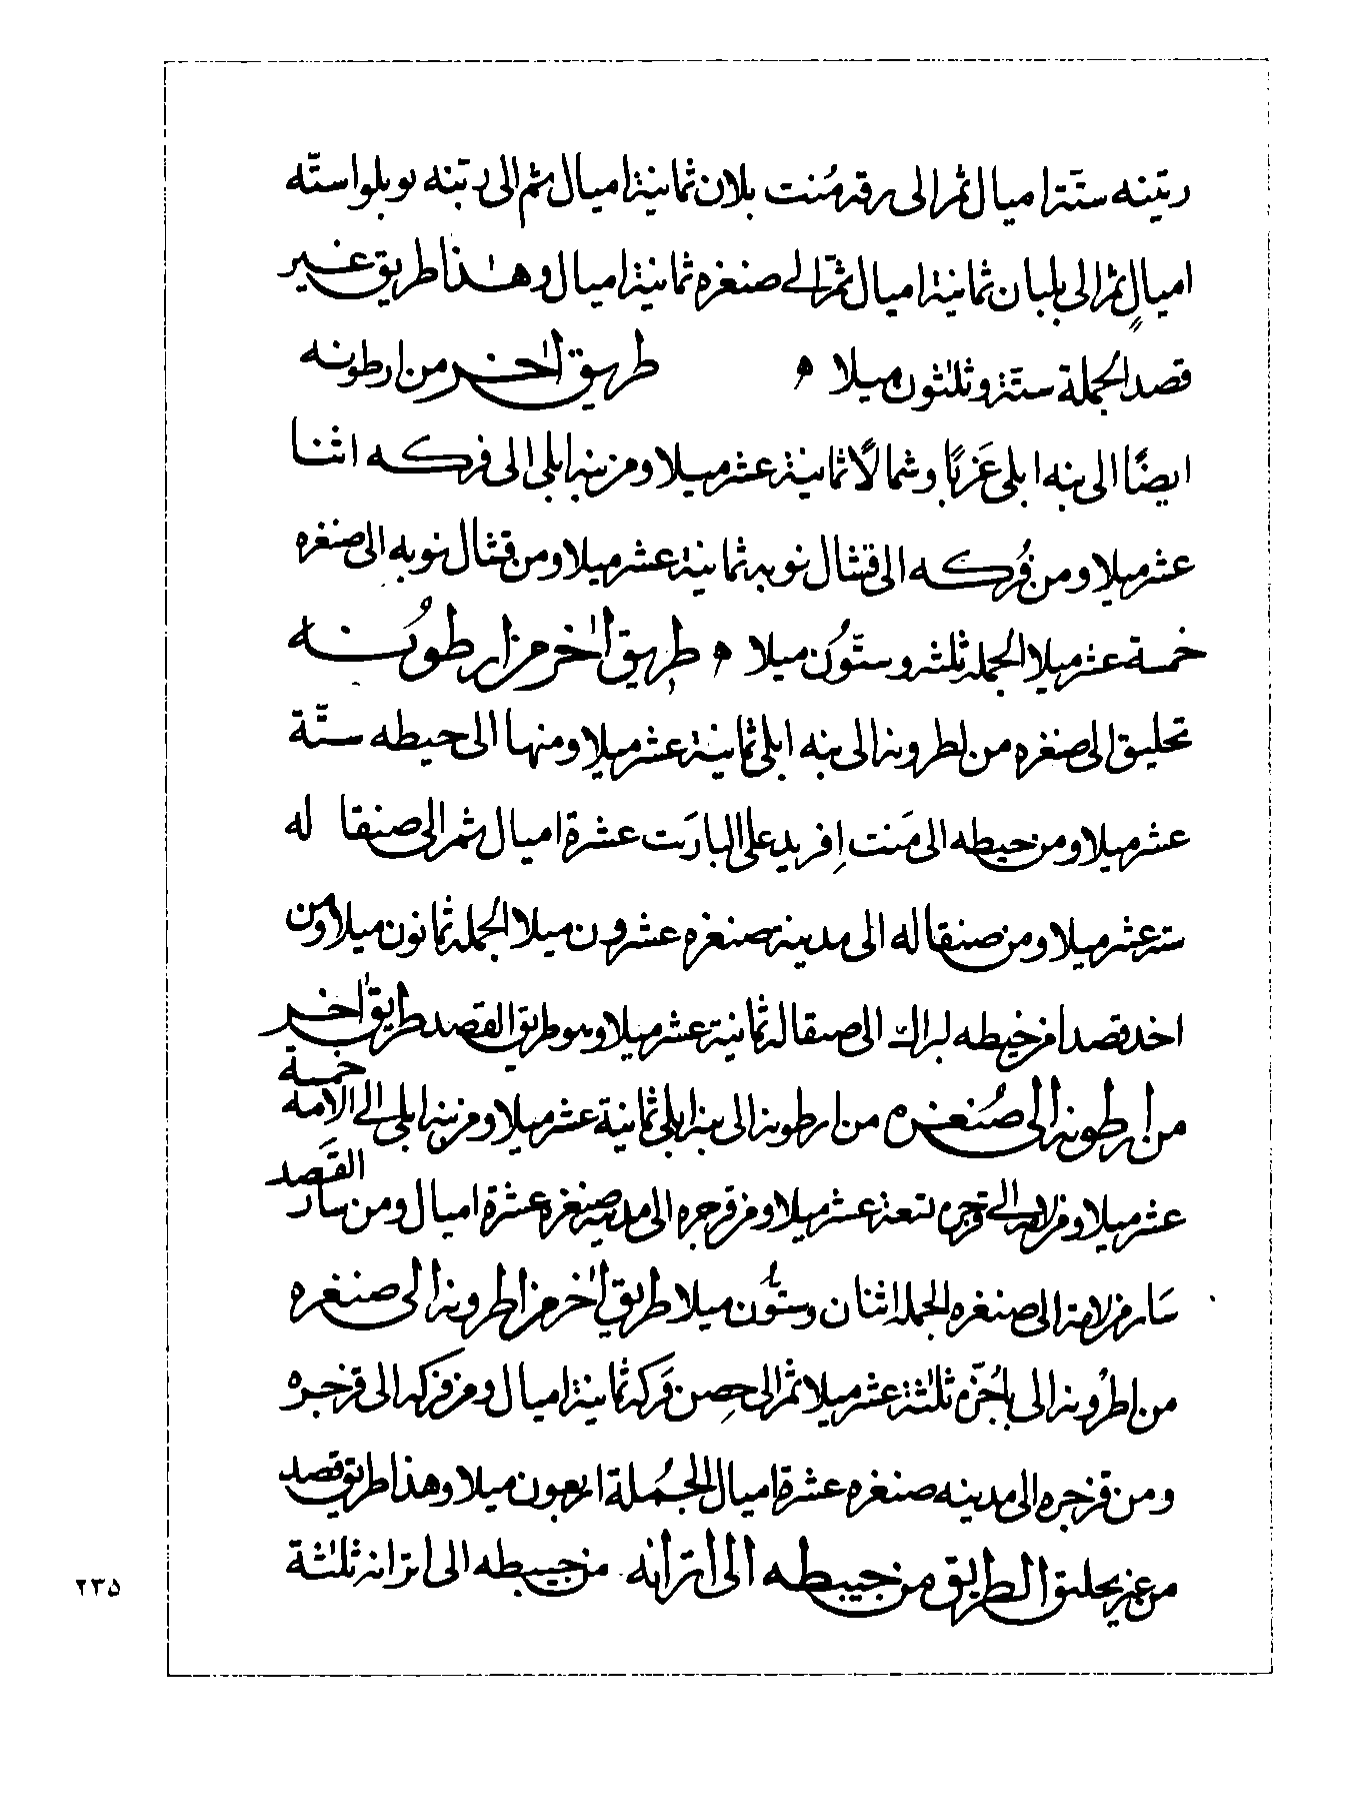 رتينه ستة اميال ثم الى رقه مُنت بلان ثمانية اميال ثم الى رتبنه بو بلوا ستّه
اميالٍ ثم الى بلبان ثمانية اميال ثمّ الى صنغره ثمانية اميال وهٰذا طريق غير
قصد الجملة ستّة وثلٰثون ميلا ه طريق اٰخر من ارطونه
ايضًا الى بنه ابلى غَربًا وشمالًا ثمانية عشر ميلا ومن بنه ابلى الى فركه اثنا
عشر ميلا ومن فُركه الى قنثال نوبه ثمانية عشر ميلا ومن قنثال نوبه الى صنغره
خمسة عشر ميلا الجمله ثلثه وستّوُن ميلا ه طريق اٰخر من ارطوُنه
تحليق الى صنغره من لطرونه الى بنه ابلى ثمانية عشر ميلا ومنها الى حيطه ستّة
عشر ميلا ومن حيطه الى مَنت اِفريد على البارَت عشرة اميال ثم الى صنقا له
سته عشر ميلا ومن صنقاله الى مدينة صنغره عشرون ميلا الجمله ثمانون ميلا ومن
اخد قصدا من خيطه لبراك الى صنقاله ثمانية عشر ميلا وهو طريق القصد طريق اٰخر
من ارطونه الى صُنغره من ارطونه الى بنه ابلى ثمانية عشر ميلا ومن بنه ابلى الى الامه خمسة
عشر ميلا ومن لامه الى قرجره تسعة عشر ميلا ومن قرجره الى مدينه صنغره عشرة اميال ومن سار القَصد
سَار من لامة الى صنغره الجمله اثنان وستوُّن ميلا طريق اٰخر من اطرونه الى صنغره
من اطرْونه الى باجُنّه ثلٰثة عشر ميلا ثم الى حِصن فَركه ثمانية اميال ومن فركه الى قرجره
ومن قرجره الى مدينه صنغره عشرة اميال الجُملة اربعون ميلا وهذا طريق قصد
من غير تحليق الطريق من جيبطه الى اترانه من جيبطه الى اترانه ثلٰثة
٢٣٥